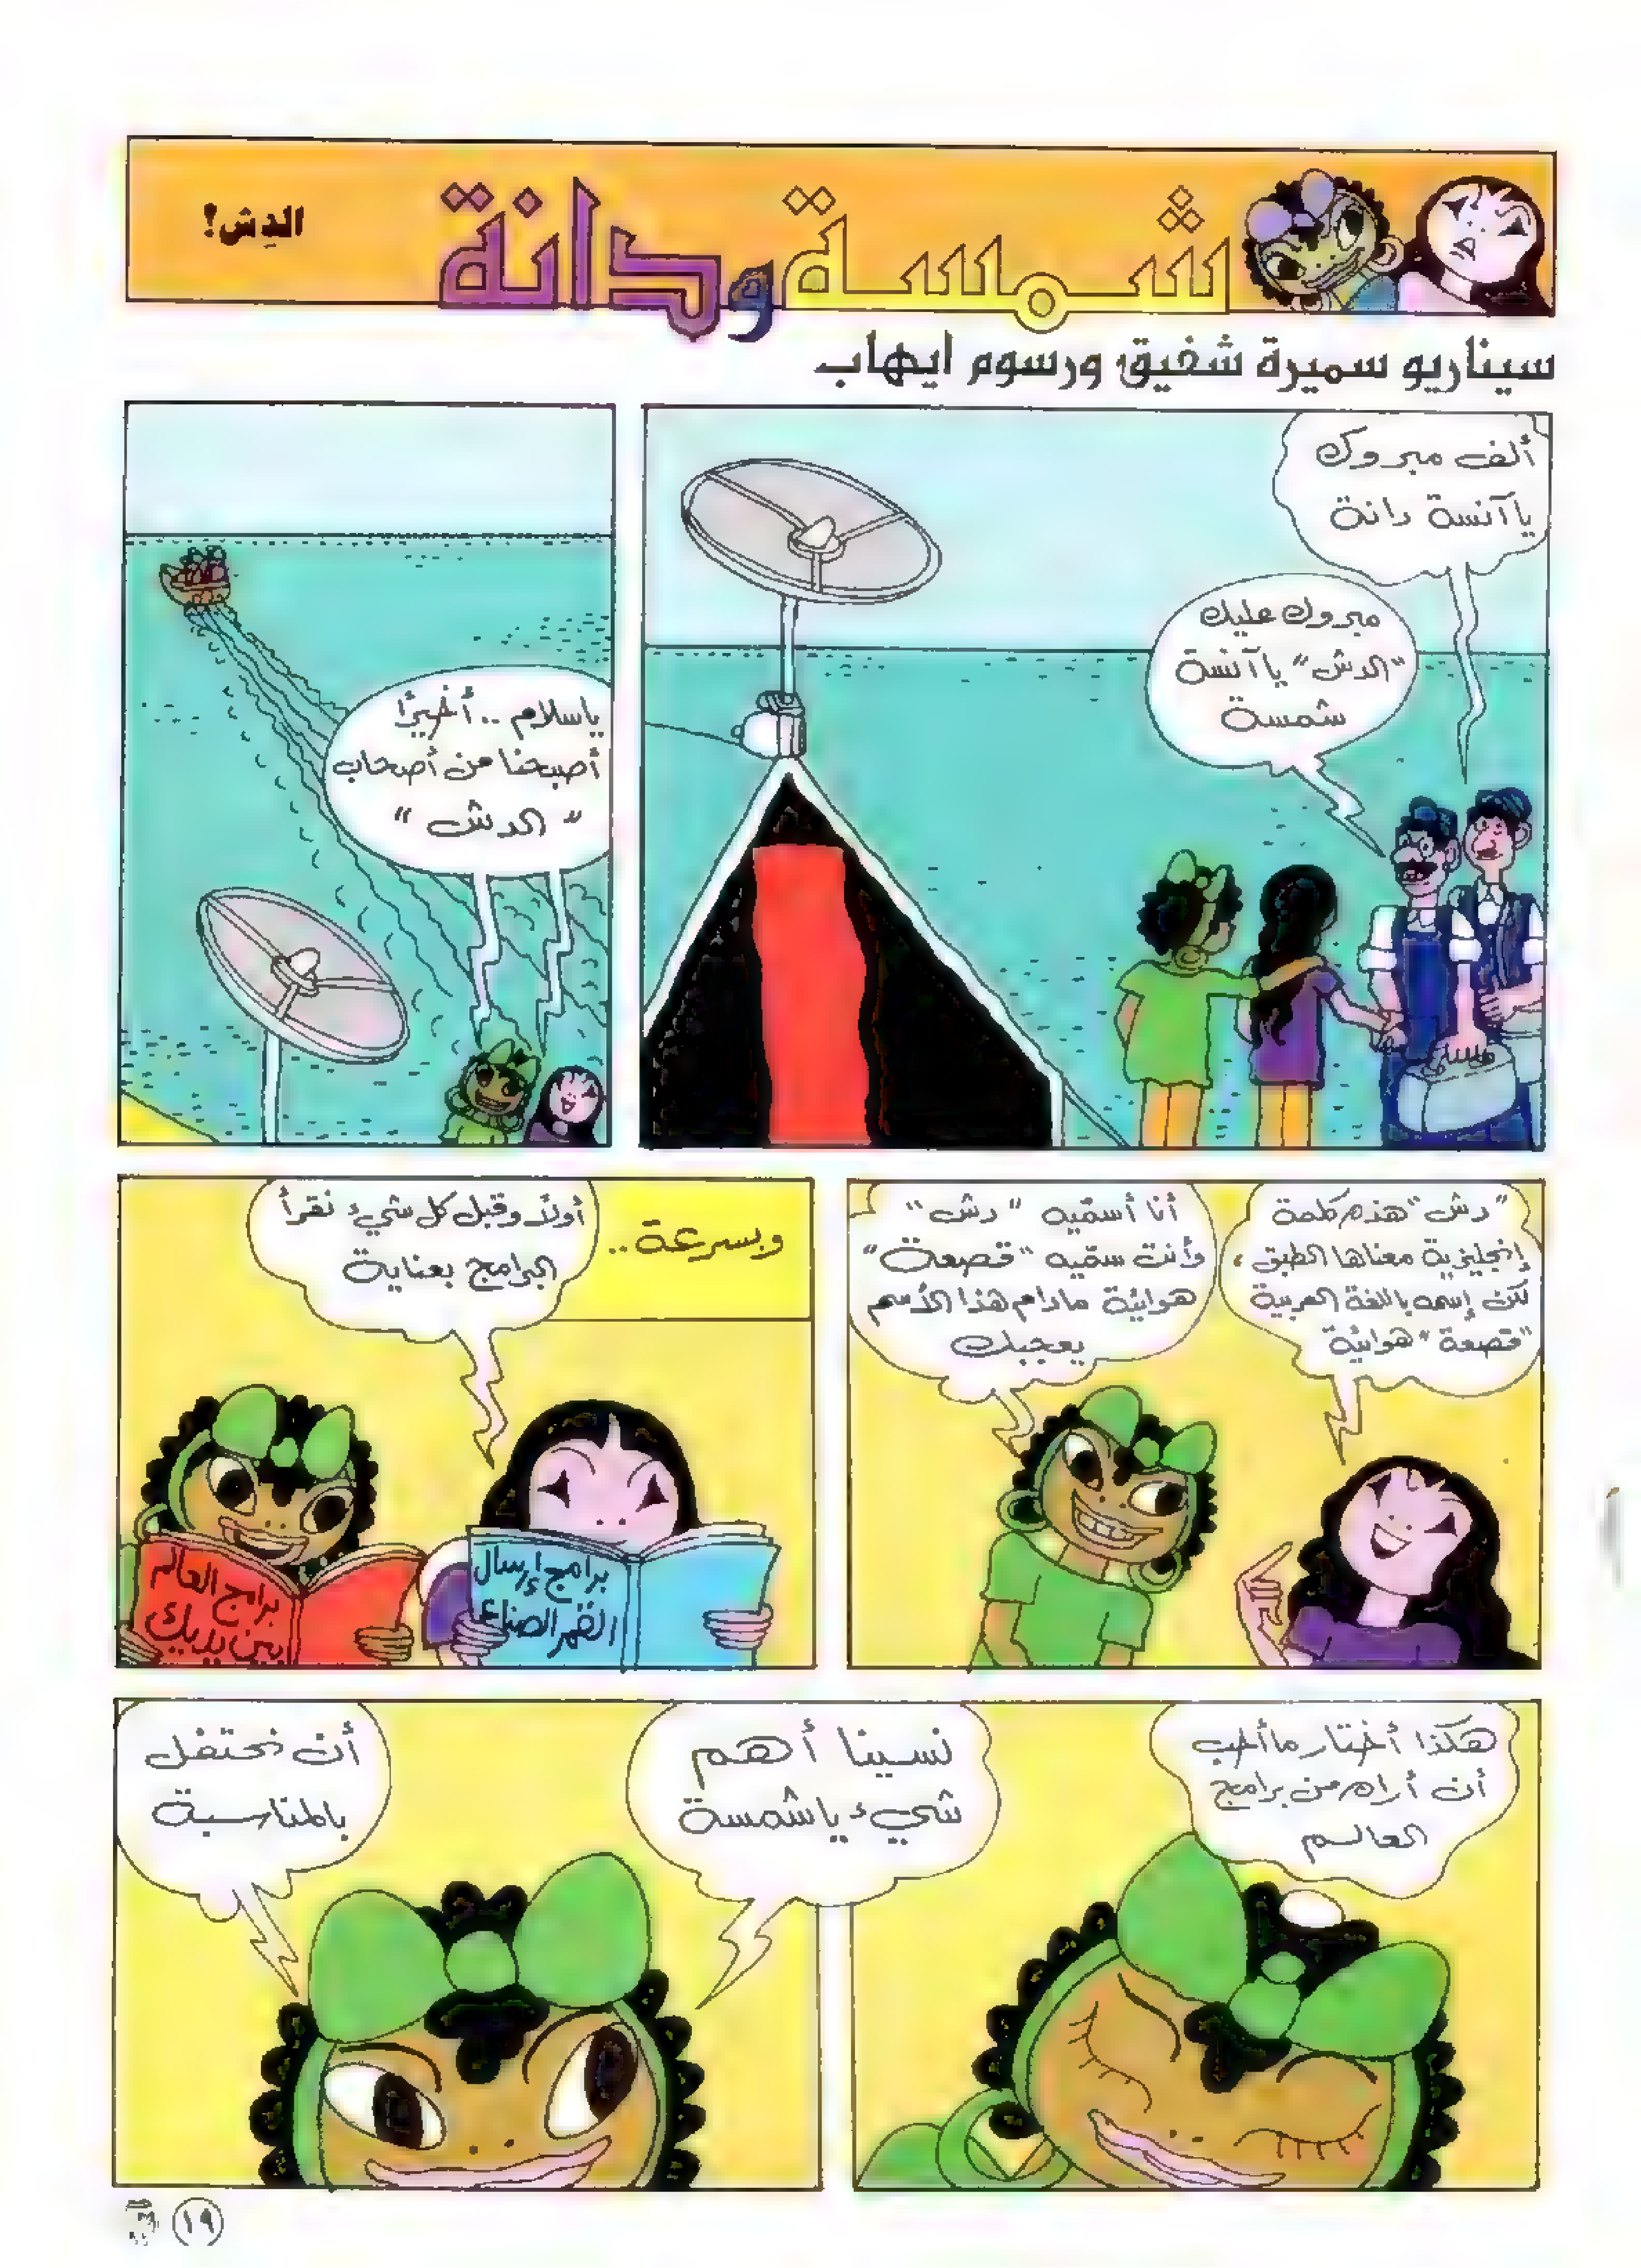 شمسة ودانة
الدِش؟
سيناريو سميرة شفيق ورسوم ايهاب
ألف مبروك
يا آنسة دانة
مبروك عليك
"الدش" يا آنسة
شمسة
ياسلام .. أخيرًا
أصبحنا من أصحاب
"الدش"
"دش" هذه كلمة
إنجليزية معناها الطبق،
لكن إسمه باللغة العربية
"قصعة" هوائية
أنا أسمّيه "دش"
وأنت سمّيه "قصعة"
هوائية مادام هذا الأسم
يعجبك
وبسرعة..
أولًا وقبل كل شيء نقرأ
البرامج بعناية
برامج إرسال
القمر الصناعي
برامج العالم
بين يديك
هكذا أختار ما أحب
أن أراه من برامج
العالم
نسينا أهم
شيء يا شمسة
أن نحتفل
بالمناسبة
١٩